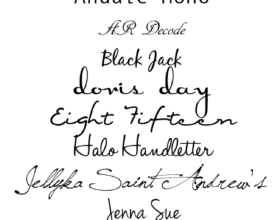 Andale Mono
AR Decode
Black Jack
doris day
Eight Fifteen
Halo Handletter
Jellyka Saint Andrew's
Jenna Sue